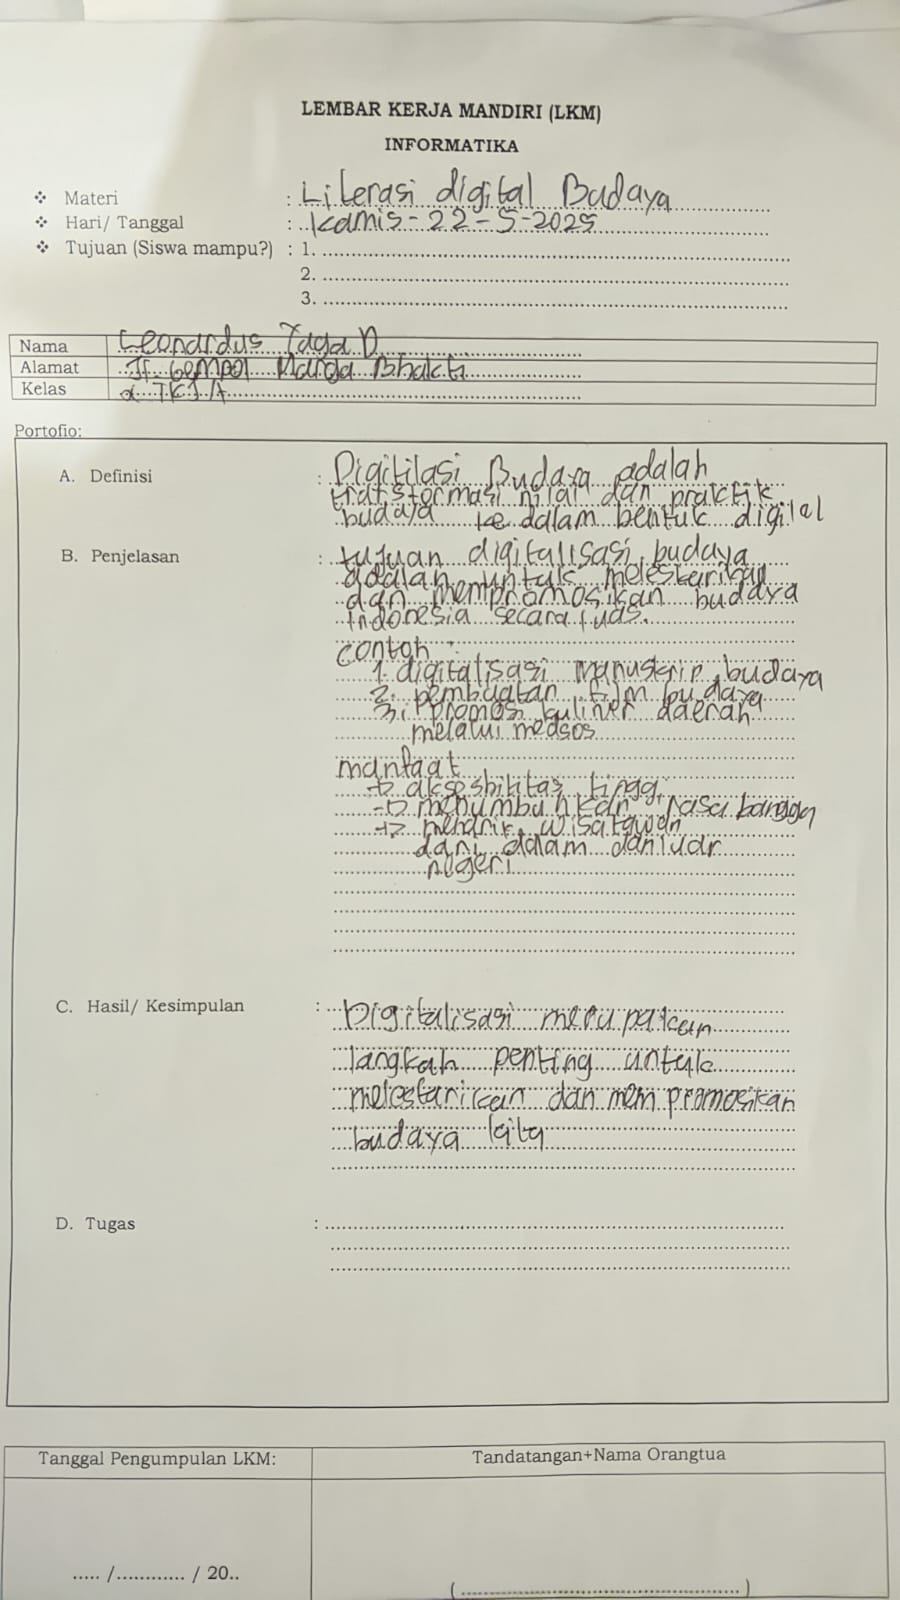 LEMBAR KERJA MANDIRI (LKM)
INFORMATIKA
❖ Materi : Literasi digital Budaya
❖ Hari/ Tanggal : Kamis - 22 - 5 - 2025
❖ Tujuan (Siswa mampu?) : 1.
2.
3.
Nama Leonardus Yaga D
Alamat Jl. Gempol Marga Bhakti
Kelas TKJ A
Portofio:
A. Definisi : Digitilasi Budaya adalah
transformasi nilai dan praktik
budaya ke dalam bentuk digital
B. Penjelasan : tujuan digitalisasi budaya
adalah untuk melestarikan
dan mempromosikan budaya
Indonesia secara luas.
contoh :
1. digitalisasi manuskrip budaya
2. pembuatan film budaya
3. promosi kuliner daerah
melalui medsos
manfaat
-> aksesbilitas tinggi
-> menumbuhkan rasa bangga
-> menarik wisatawan
dari dalam dan luar
negeri
C. Hasil/ Kesimpulan : Digitalisasi merupakan
langkah penting untuk
melestarikan dan mempromosikan
budaya kita
D. Tugas :
Tanggal Pengumpulan LKM: Tandatangan+Nama Orangtua
..... /............ / 20..
(................................................)